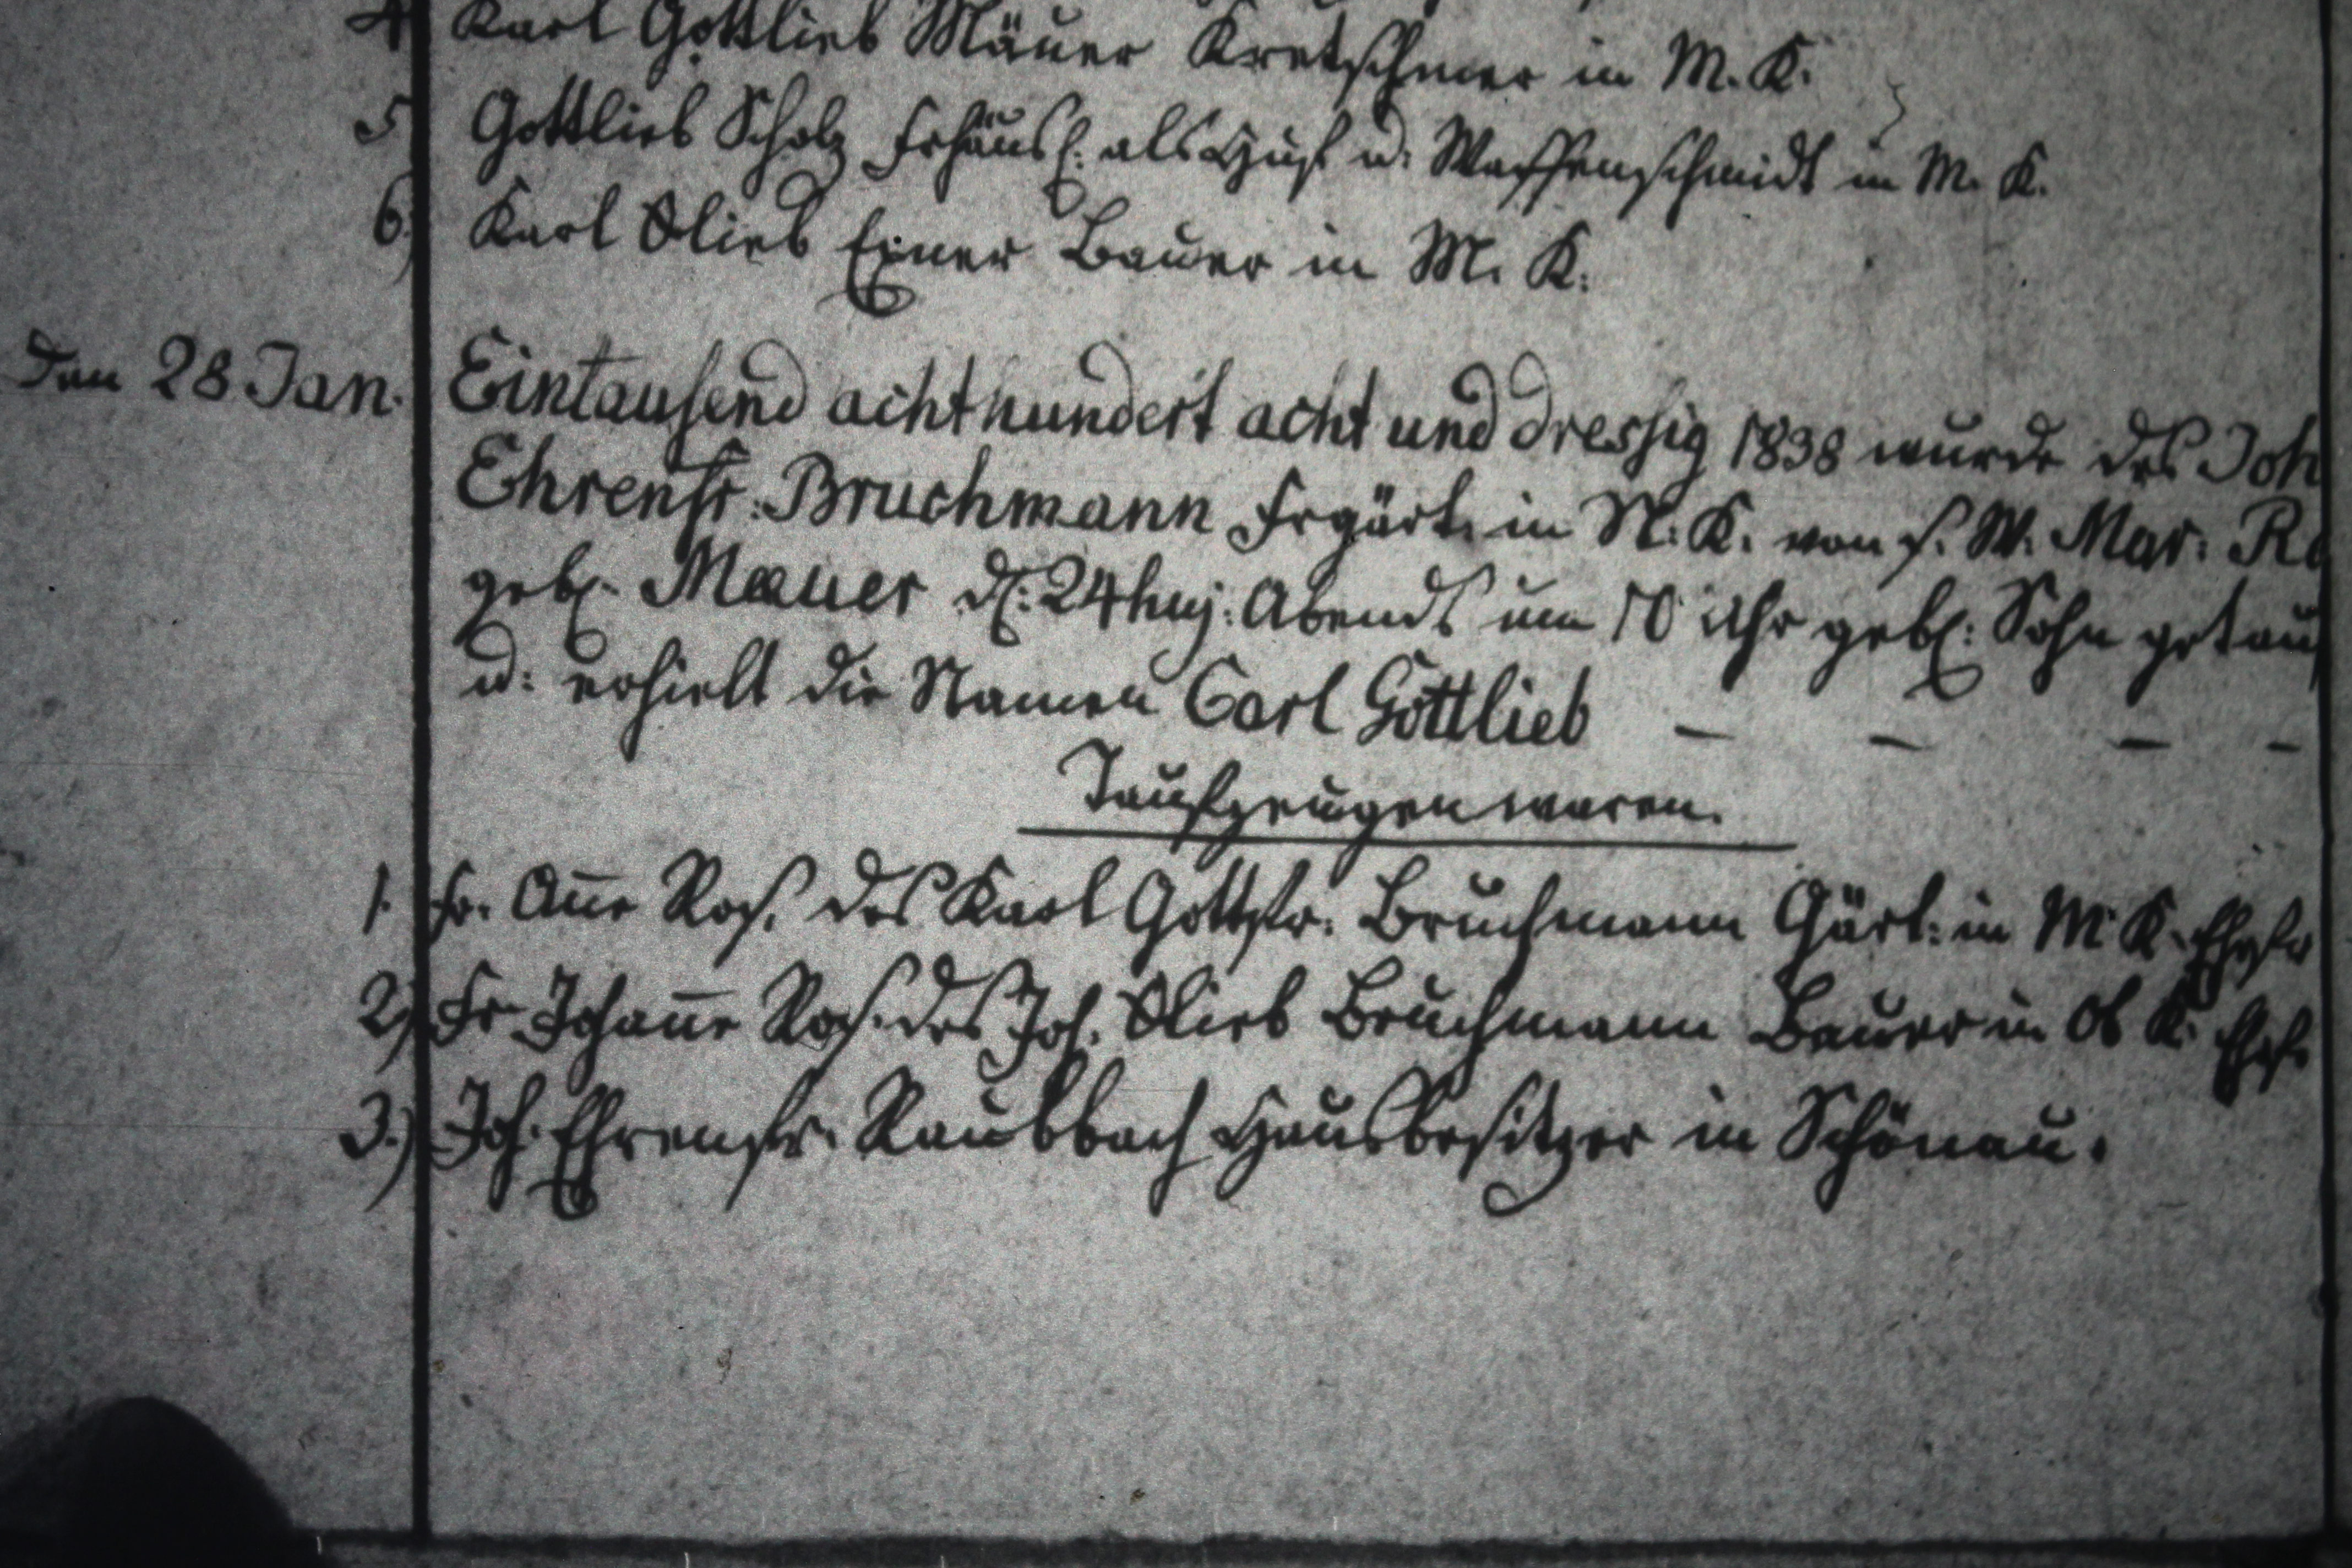 4 Karl Gottlieb Mäuer Kretschmer in M. K.
5 Gottlieb Scholz Frhäusl. als Huf u. Waffenschmidt in M. K.
6.) Karl Glieb Exner Bauer in M. K.
den 28 Jan. Eintausend achthundert acht und dressig 1838 wurde des Joh
Ehrenfr: Bruchmann Frgärt. in N. K. von s. W. Mar: Ro
gebl. Mauer d. 24 huj: Abends um 10 Uhr gebl: Sohn getauf
u: erhielt die Namen Carl Gottlieb – – – –
Taufzeugen waren.
1. Fr. Anne Ros. des Karl Gottfr. Bruchmann Gärt: in M K. Ehefr
2.) Fr. Johanne Ros. des Joh. Glieb Bruchmann Bauer in Ob K. Ehef.
3.) Joh. Ehrenfr. Raubbach Hausbesitzer in Schönau.